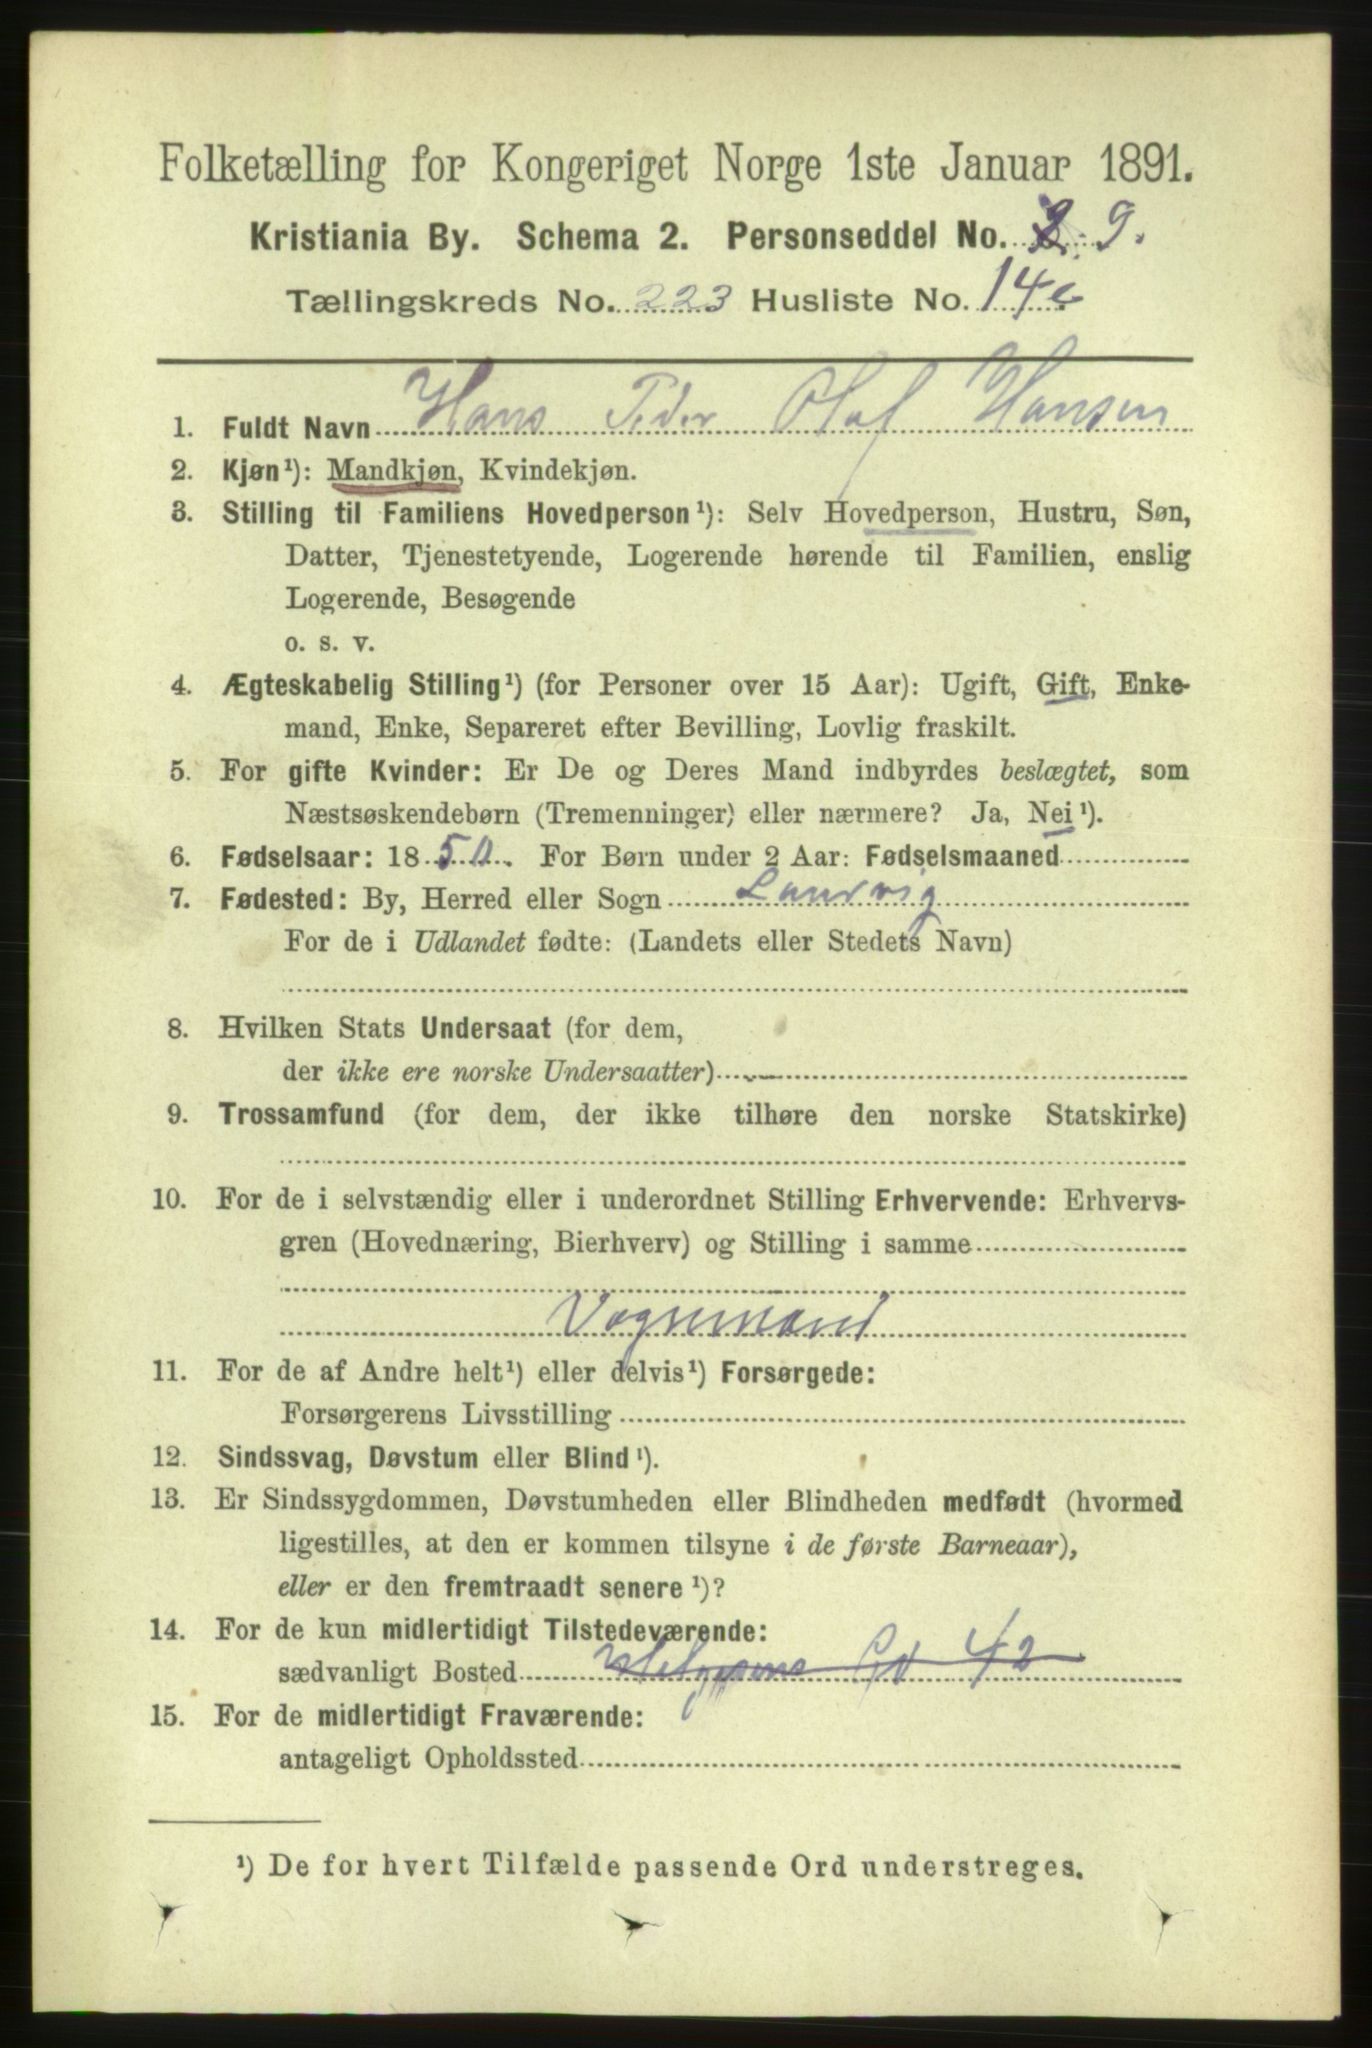 Folketælling for Kongeriget Norge 1ste Januar 1891.
Kristiania By. Schema 2. Personseddel No. 9.
Tællingskreds No. 223 Husliste No. 14c
1. Fuldt Navn Hans Peder Olaf Hansen
2. Kjøn¹): Mandkjøn, Kvindekjøn.
3. Stilling til Familiens Hovedperson¹): Selv Hovedperson, Hustru, Søn,
Datter, Tjenestetyende, Logerende hørende til Familien, enslig
Logerende, Besøgende
o. s. v.
4. Ægteskabelig Stilling¹) (for Personer over 15 Aar): Ugift, Gift, Enke-
mand, Enke, Separeret efter Bevilling, Lovlig fraskilt.
5. For gifte Kvinder: Er De og Deres Mand indbyrdes beslægtet, som
Næstsøskendebørn (Tremenninger) eller nærmere? Ja, Nei¹).
6. Fødselsaar: 1850. For Børn under 2 Aar: Fødselsmaaned
7. Fødested: By, Herred eller Sogn Laurvig
For de i Udlandet fødte: (Landets eller Stedets Navn)
8. Hvilken Stats Undersaat (for dem,
der ikke ere norske Undersaatter)
9. Trossamfund (for dem, der ikke tilhøre den norske Statskirke)
10. For de i selvstændig eller i underordnet Stilling Erhvervende: Erhvervs-
gren (Hovednæring, Bierhverv) og Stilling i samme
Vognmand
11. For de af Andre helt¹) eller delvis¹) Forsørgede:
Forsørgerens Livsstilling
12. Sindssvag, Døvstum eller Blind¹).
13. Er Sindssygdommen, Døvstumheden eller Blindheden medfødt (hvormed
ligestilles, at den er kommen tilsyne i de første Barneaar),
eller er den fremtraadt senere¹)?
14. For de kun midlertidigt Tilstedeværende:
sædvanligt Bosted Gd 42
15. For de midlertidigt Fraværende:
antageligt Opholdssted
¹) De for hvert Tilfælde passende Ord understreges.